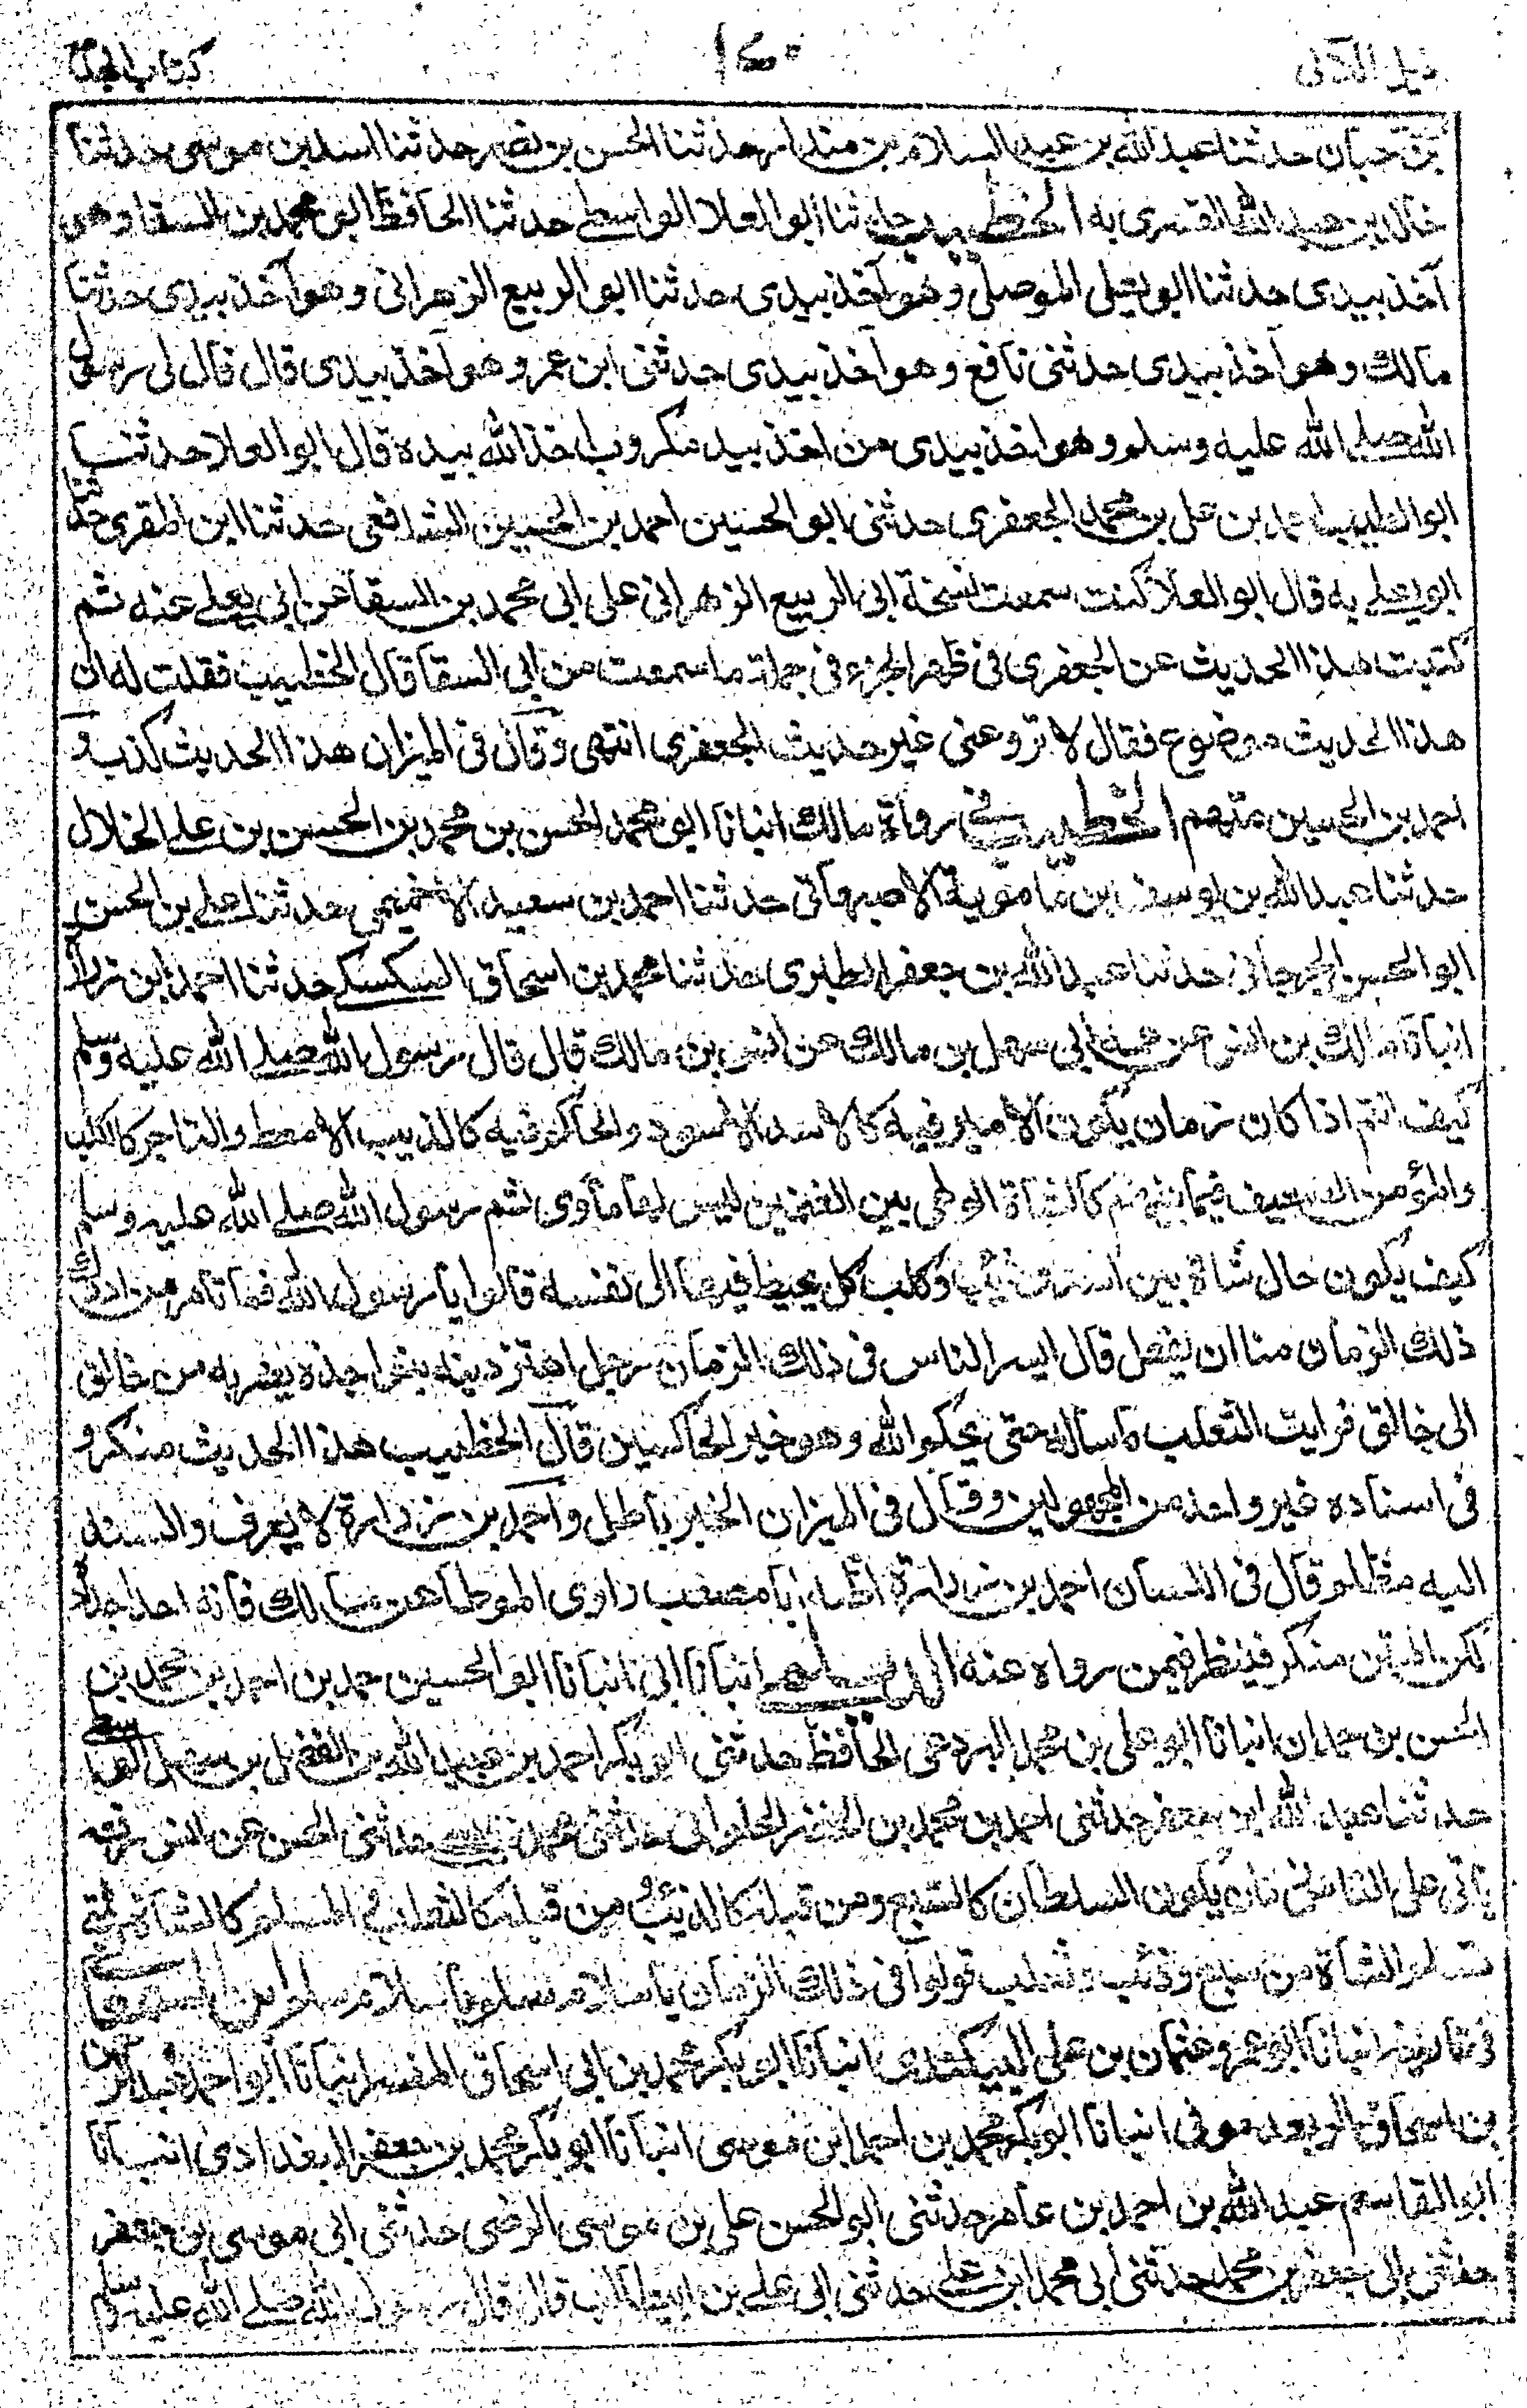 ذيل اللآلى ١٤٠ كتاب الجهاد
بن حبان حدثنا عبد الله بن عبد السلام بن بندار حدثنا الحسن بن نصر حدثنا اسد بن موسى حدثنا
خالد بن عبد الله القسرى به الخطيب حدثنا ابو العلا الواسطے حدثنا الحافظ ابو محمد بن السقا وهو
آخذ بيدى حدثنا ابو يعلى الموصلى وهو آخذ بيدى حدثنا ابو الربيع الزهرانى وهو آخذ بيدى حدثنا
مالك وهو آخذ بيدى حدثنى نافع وهو آخذ بيدى حدثنى ابن عمر وهو آخذ بيدى قال قال لى رسول
الله صلے الله عليه وسلم وهو اخذ بيدى من اخذ بيد مكروب اخذ الله بيده قال ابو العلا حدثنـا
ابو الطيب احمد بن على بن محمد الجعفرى حدثنى ابو الحسين احمد بن الحسين الشافعى حدثنا ابن المقرى حدثنا
ابو يعلے به قال ابو العلا كنت سمعت نسخة ابى الربيع الزهرانى على ابى محمد بن السقا عن ابى يعلے عنه ثم
كتبت هذا الحديث عن الجعفرى فى ظهر الجزء فى جملة ما سمعت من ابى السقا قال الخطيب فقلت له ان
هذا الحديث موضوع فقال لا تروعنى غير حديث الجعفرى انتهى وقال فى الميزان هذا الحديث كذب و
احمد بن الحسين متهم الخطيب فى رواة مالك انبانا ابو محمد الحسن بن محمد بن الحسن بن على الخلال
حدثنا عبد الله بن يوسف بن مامويه الاصبهانى حدثنا احمد بن سعيد الاخميمى حدثنا على بن الحسن
ابو الحسن الجرجانى حدثنا عبد الله بن جعفر الطبرى حدثنا محمد بن اسحاق السكسكے حدثنا احمد ابن زرارة
انبانا مالك بن انس عن عمه ابى سهل بن مالك عن انس بن مالك قال قال رسول الله صلے الله عليه وسلم
كيف انتم اذا كان زمان يكون الامير فيه كالاسد الاسود والحاكم فيه كالذيب الامعط والتاجر كالكلب
والمؤمن الضعيف فيما بينهم كالشاة الولهى بين الغنمين ليس لها ماوى ثم رسول الله صلے الله عليه وسلم
كيف يكون حال شاة بين اسد وذئب وكلب كل يحيط فيها الى نفسه قالوا يا رسول الله فما تامر من ادرك
ذلك الزمان منا ان يفعل قال ايسر الناس فى ذلك الزمان رجل احترز دينه يفر به من خالق
الى خالق فرايت الثعلب حتى يحكم الله وهو خير الحاكمين قال الخطيب هذا الحديث منكر و
فى اسناده غير واحد من المجهولين وقال فى الميزان الخبر باطل واحمد بن زرارة لا يعرف والسند
اليه مظلم وقال فى اللسان احمد بن زرارة اظنه ابا مصعب راوى الموطا عن مالك فانه احد اجداده
لكن المتن منكر فينظر فيمن رواه عنه الديلمے انبانا ابى انبانا ابو الحسين حمد بن احمد بن محمد بن
الحسن بن حمدان انبانا ابو على بن محمد البردعى الحافظ حدثنى ابو بكر احمد بن عبيد الله بن الفضل بن سهل
حدثنا عبد الله ابن جعفر حدثنى احمد بن محمد بن المظفر الحلوانى حدثنى محمد حدثنى الحسن عن انس رفعه
ياتى على الناس زمان يكون السلطان كالسبع ومن قبله كالذئب ومن قبله كالثعلب والمسلم كالشاة فمتى
تسلم الشاة من سبع وذئب وثعلب قولوا فى ذلك الزمان يا سلام سلم يا سلام سلم ابن السمعانى
فى انبانا ابو عمرو عثمان بن على البيكندى انبانا ابو بكر محمد بن ابى اسحاق المفسر انبانا ابو احمد
بن اسحاق انبانا ابو بكر محمد بن احمد ابن موسى انبانا ابو بكر محمد بن جعفر البغدادى انبـانا
ابو القاسم عبد الله بن احمد بن عامر حدثنى ابو الحسن على بن موسى الرضى حدثنى ابى موسى بن جعفر
حدثنى ابى جعفر بن محمد حدثنى ابى محمد ابن على حدثنى ابى على بن ابيطالب قال قال رسول الله صلے الله عليه وسلم